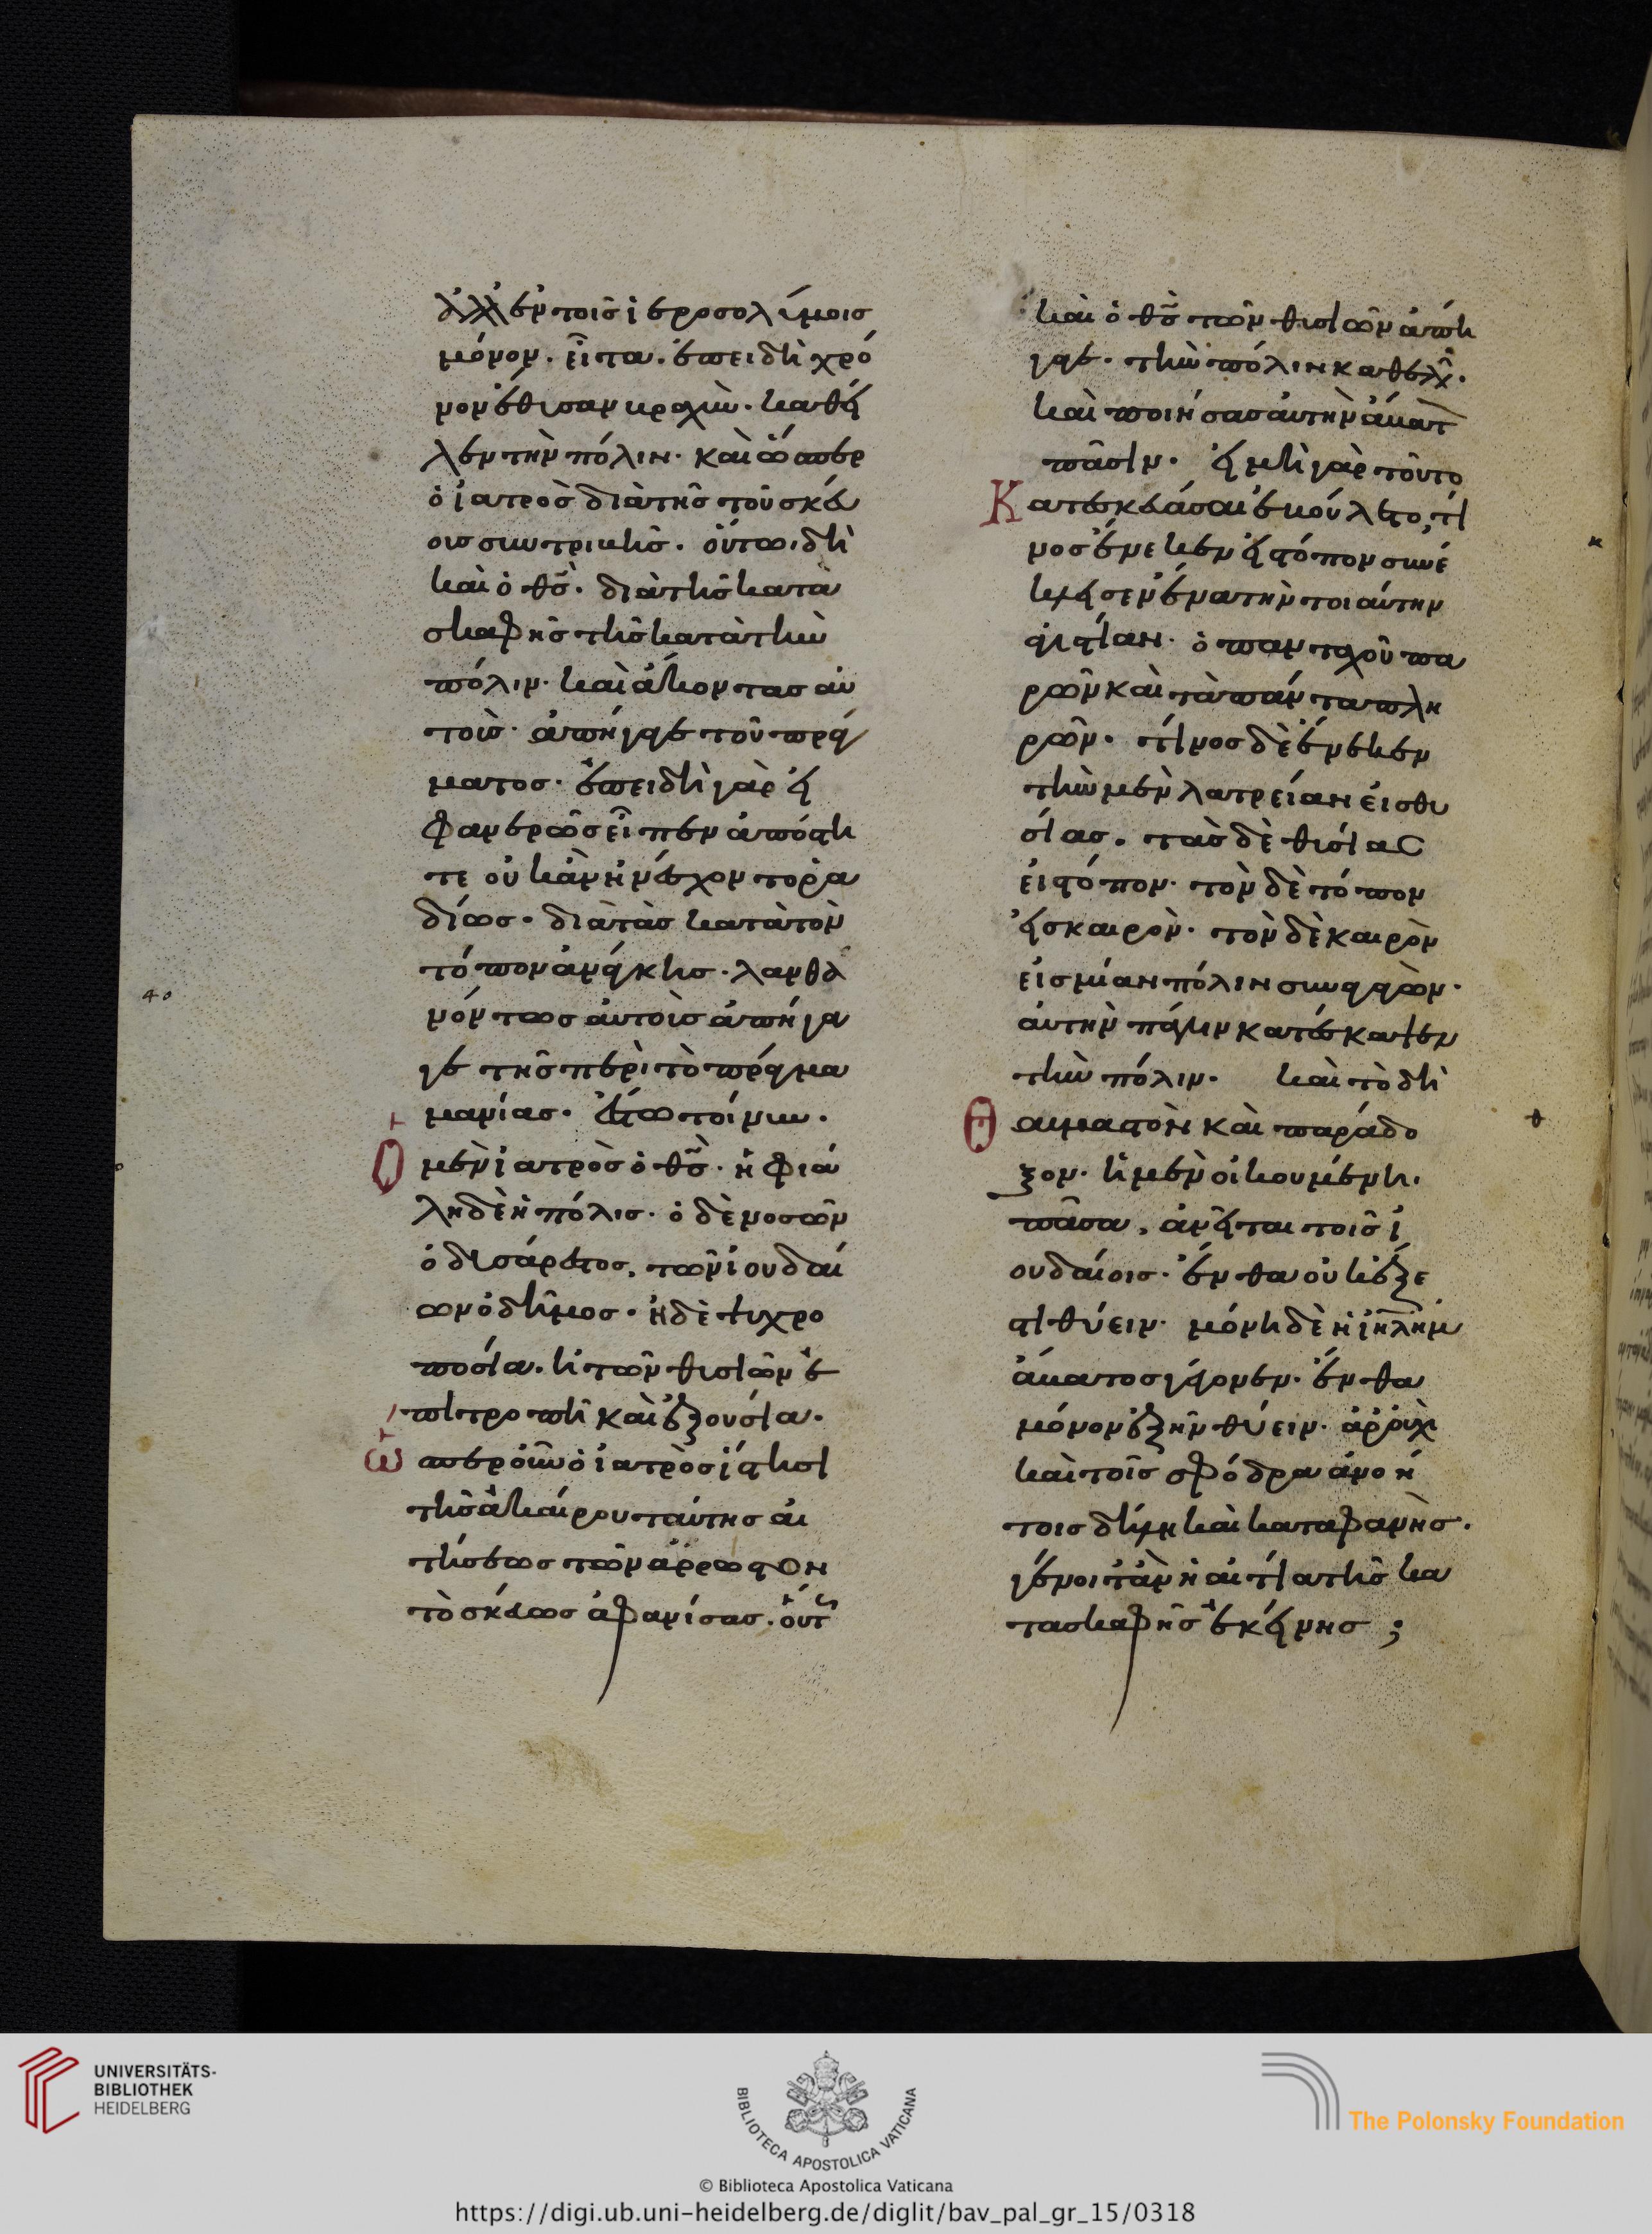 ἀλλ' ἐν τοῖς ἱεροσολύμοις
μόνον. εἶτα. ἐπειδὴ χρό
νον ἔθυσαν βραχὺν. καθεῖ
λεν τὴν πόλιν. καὶ ὥσπερ
ὁ ἰατρὸς διὰ τῆς τοῦ σκεύ
ους συντριβῆς. οὕτω δὴ
καὶ ὁ θς̅. διὰ τῆς κατα
σκαφῆς τῆς κατὰ τὴν
πόλιν. καὶ ἄκοντας αὐ
τοὺς. ἀπήγαγε τοῦ πράγ
ματος. ἐπειδὴ γὰρ εἰ
φανερῶς εἶπεν ἀπόστη
τε οὐκ ἂν ἠνέσχοντο ῥα
δίως. διὰ τὰς κατὰ τὸν
τόπον ἀνάγκης. λανθα
νόντως αὐτοὺς ἀπήγα
γε τῆς περὶ τὸ πρᾶγμα
μανίας. ἔστω τοίνυν.
Ὁ μὲν ἰατρὸς ὁ θς̅. ἡ φιά
λη δὲ ἡ πόλις. ὁ δὲ νοσῶν
ὁ δυσάρεστος, τῶν ἰουδαί
ων ὁ δῆμος. ἡ δὲ ψυχρο
ποσία. ἡ τῶν θυσιῶν ἐ
πιτροπὴ καὶ ἐξουσία.
Ὥσπερ οὖν ὁ ἰατρὸς ἵστησι
τῆς ἀκαίρου ταύτης αἰ
τήσεως τὸν ἄρρωστον
τὸ σκεῦος ἀφανίσας. οὕτ
καὶ ὁ θς̅ τῶν θυσιῶν ἀπή
γαγε. τὴν πόλιν καθελὼν.
καὶ ποιήσας αὐτὴν ἄβατ
πᾶσιν. εἰ μὴ γὰρ τοῦτο
Κατασκευάσαι ἐβούλετο, τί
νος ἕνεκεν εἰς τόπον συνέ
κλεισεν ἕνα τὴν τοιαύτην
ἁγιστίαν. ὁ πανταχοῦ πα
ρὼν καὶ τὰ πάντα πλη
ρῶν. τίνος δὲ ἕνεκεν
τὴν μὲν λατρείαν εἰς θυ
σίας. τὰς δὲ θυσίας
εἰς τόπον. τὸν δὲ τόπον
εἰς καιρὸν. τὸν δὲ καιρὸν
εἰς μίαν πόλιν συναγαγὼν.
αὐτὴν πάλιν κατέσκαψεν
τὴν πόλιν. καὶ τὸ δὴ
Θαυμαστὸν καὶ παράδο
ξον. ἡ μὲν οἰκουμένη.
πᾶσα, ἀνεῖται τοῖς ἰ
ουδαίοις. ἔνθα οὐκ ἔξε
στι θύειν. μόνη δὲ ἡ ἰη̅λη̅μ
ἄβατος γέγονεν. ἔνθα
μόνον ἐξῆν θύειν. ἆρ' οὐχὶ
καὶ τοῖς σφόδρα ἀνοή
τοις δήλη καὶ καταφανὴς.
γένοιτ' ἂν ἡ αἰτία τῆς κα
τασκαφῆς ἐκείνης ;
40
UNIVERSITÄTS-
BIBLIOTHEK
HEIDELBERG
BIBLIOTECA APOSTOLICA VATICANA
© Biblioteca Apostolica Vaticana
The Polonsky Foundation
https://digi.ub.uni-heidelberg.de/diglit/bav_pal_gr_15/0318